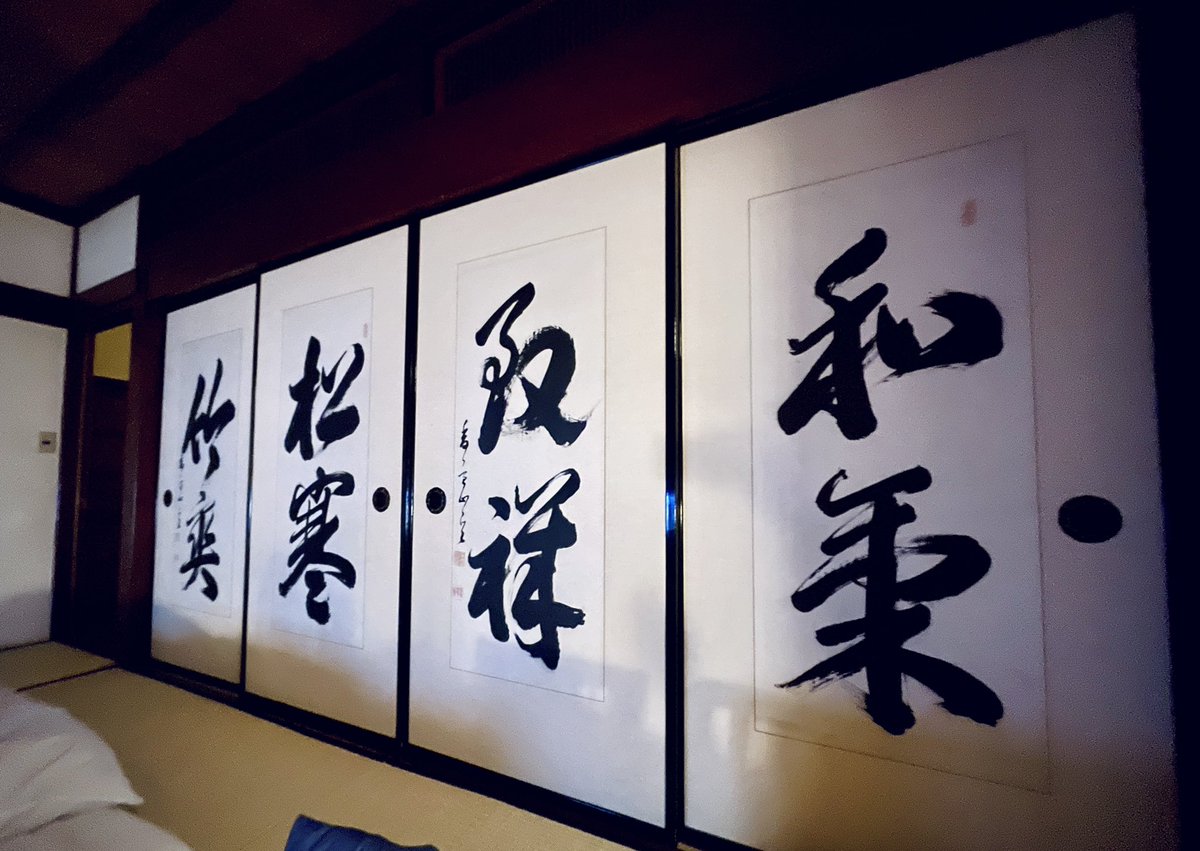 和氣
致祥
松寒
竹爽